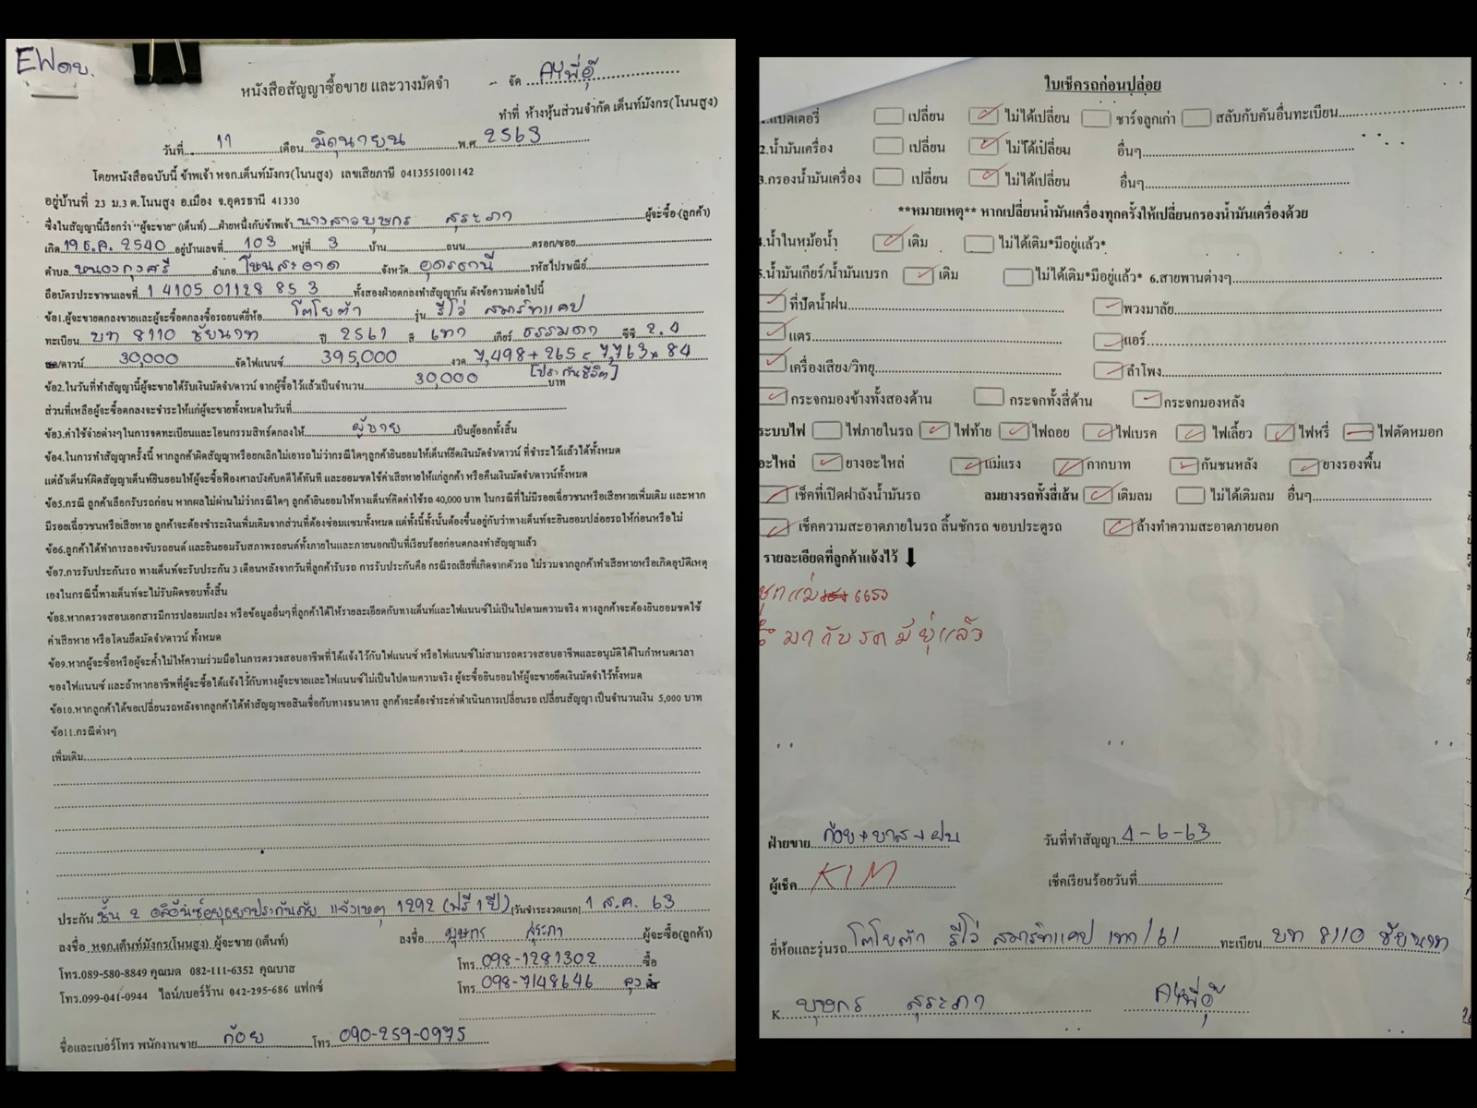 EW ดบ.
หนังสือสัญญาซื้อขาย และวางมัดจำ - จัด AYพี่อู๊
ทำที่ ห้างหุ้นส่วนจำกัด เต็นท์มังกร(โนนสูง)
วันที่ 11 เดือน มิถุนายน พ.ศ 2563
โดยหนังสือฉบับนี้ ข้าพเจ้า หจก.เต็นท์มังกร(โนนสูง) เลขเสียภาษี 0413551001142
อยู่บ้านที่ 23 ม.3 ต.โนนสูง อ.เมือง จ.อุดรธานี 41330
ซึ่งในสัญญานี้เรียกว่า "ผู้จะขาย" (เต็นท์) ....ฝ่ายหนึ่งกับข้าพเจ้า นางสาวบุษกร สุระภา ผู้จะซื้อ (ลูกค้า)
เกิด 19 ธ.ค. 2540 อยู่บ้านเลขที่ 103 หมู่ที่ 3 บ้าน ถนน ตรอก/ซอย
ตำบล หนองกุงศรี อำเภอ โนนสะอาด จังหวัด อุดรธานี รหัสไปรษณีย์
ถือบัตรประชาชนเลขที่ 1 4105 01128 85 3 ทั้งสองฝ่ายตกลงทำสัญญากัน ดังข้อความต่อไปนี้
ข้อ1.ผู้จะขายตกลงขายและผู้จะซื้อตกลงซื้อรถยนต์ยี่ห้อ โตโยต้า รุ่น รีโว่ สมาร์ทแคป
ทะเบียน บท 8110 ชัยนาท ปี 2561 สี เทา เกียร์ ธรรมดา ซีซี 2.4
สด/ดาวน์ 30,000 จัดไฟแนนซ์ 395,000 งวด 7,498 + 265 = 7,763 x 84
[ประกันชีวิต]
ข้อ2.ในวันที่ทำสัญญานี้ผู้จะขายได้รับเงินมัดจำ/ดาวน์ จากผู้ซื้อไว้แล้วเป็นจำนวน 30,000 บาท
ส่วนที่เหลือผู้จะซื้อตกลงจะชำระให้แก่ผู้จะขายทั้งหมดในวันที่
ข้อ3.ค่าใช้จ่ายต่างๆในการจดทะเบียนและโอนกรรมสิทธ์ตกลงให้ ผู้ขาย เป็นผู้ออกทั้งสิ้น
ข้อ4.ในการทำสัญญาครั้งนี้ หากลูกค้าผิดสัญญาหรือยกเลิกไม่เอารถ ไม่ว่ากรณีใดๆลูกค้ายินยอมให้เต็นท์ยึดเงินมัดจำ/ดาวน์ ที่ชำระไว้แล้วได้ทั้งหมด
แต่ถ้าเต็นท์ผิดสัญญาเต็นท์ยินยอมให้ผู้จะซื้อฟ้องศาลบังคับคดีได้ทันที และยอมชดใช้ค่าเสียหายให้แก่ลูกค้า หรือคืนเงินมัดจำ/ดาวน์ทั้งหมด
ข้อ5.กรณี ลูกค้าเลือกรับรถก่อน หากผลไม่ผ่านไม่ว่ากรณีใดๆ ลูกค้ายินยอมให้ทางเต็นท์คิดค่าใช้รถ 40,000 บาท ในกรณีที่ไม่มีรอยเฉี่ยวชนหรือเสียหายเพิ่มเติม และหาก
มีรอยเฉี่ยวชนหรือเสียหาย ลูกค้าจะต้องชำระเงินเพิ่มเติมจากส่วนที่ต้องซ่อมแซมทั้งหมด แต่ทั้งนี้ทั้งนั้นต้องขึ้นอยู่กับว่าทางเต็นท์จะยินยอมปล่อยรถให้ก่อนหรือไม่
ข้อ6.ลูกค้าได้ทำการลองขับรถยนต์ และยินยอมรับสภาพรถยนต์ทั้งภายในและภายนอกเป็นที่เรียบร้อยก่อนตกลงทำสัญญาแล้ว
ข้อ7.การรับประกันรถ ทางเต็นท์จะรับประกัน 3 เดือนหลังจากวันที่ลูกค้ารับรถ การรับประกันคือ กรณีรถเสียที่เกิดจากตัวรถ ไม่รวมจากลูกค้าทำเสียหายหรือเกิดอุบัติเหตุ
เองในกรณีนี้ทางเต็นท์จะไม่รับผิดชอบทั้งสิ้น
ข้อ8.หากตรวจสอบเอกสารมีการปลอมแปลง หรือข้อมูลอื่นๆที่ลูกค้าได้ให้รายละเอียดกับทางเต็นท์และไฟแนนซ์ไม่เป็นไปตามความจริง ทางลูกค้าจะต้องยินยอมชดใช้
ค่าเสียหาย หรือโดนยึดมัดจำ/ดาวน์ ทั้งหมด
ข้อ9.หากผู้จะซื้อหรือผู้จะค้ำไม่ให้ความร่วมมือในการตรวจสอบอาชีพที่ได้แจ้งไว้กับไฟแนนซ์ หรือไฟแนนซ์ไม่สามารถตรวจสอบอาชีพและอนุมัติได้ในกำหนดเวลา
ของไฟแนนซ์ และถ้าหากอาชีพที่ผู้จะซื้อได้แจ้งไว้กับทางผู้จะขายและไฟแนนซ์ไม่เป็นไปตามความจริง ผู้จะซื้อยินยอมให้ผู้จะขายยึดเงินมัดจำไว้ทั้งหมด
ข้อ10.หากลูกค้าได้ขอเปลี่ยนรถหลังจากลูกค้าได้ทำสัญญาขอสินเชื่อกับทางธนาคาร ลูกค้าจะต้องชำระค่าดำเนินการเปลี่ยนรถ เปลี่ยนสัญญา เป็นจำนวนเงิน 5,000 บาท
ข้อ11.กรณีต่างๆ
เพิ่มเติม
ประกัน ชั้น 2 อลิอันซ์อยุธยาประกันภัย แจ้งเหตุ 1292 (ฟรี 1 ปี) (วันชำระงวดแรก) 1 ส.ค. 63
ลงชื่อ หจก.เต็นท์มังกร(โนนสูง) ผู้จะขาย (เต็นท์) ลงชื่อ บุษกร สุระภา ผู้จะซื้อ(ลูกค้า)
โทร.089-580-8849 คุณมด 082-111-6352 คุณบาส โทร. 098-1281302 ซื้อ
โทร.099-041-0944 ไลน์/เบอร์ร้าน 042-295-686 แฟกซ์ โทร. 098-7148646
ชื่อและเบอร์โทร พนักงานขาย ก้อย โทร 090-259-0975
ใบเช็ครถก่อนปล่อย
1.แบตเตอรี่ เปลี่ยน ไม่ได้เปลี่ยน ชาร์จลูกเก่า สลับกับคันอื่นทะเบียน
2.น้ำมันเครื่อง เปลี่ยน ไม่ได้เปลี่ยน อื่นๆ
3.กรองน้ำมันเครื่อง เปลี่ยน ไม่ได้เปลี่ยน อื่นๆ
**หมายเหตุ** หากเปลี่ยนน้ำมันเครื่องทุกครั้งให้เปลี่ยนกรองน้ำมันเครื่องด้วย
4.น้ำในหม้อน้ำ เติม ไม่ได้เติม*มีอยู่แล้ว*
5.น้ำมันเกียร์/น้ำมันเบรก เติม ไม่ได้เติม*มีอยู่แล้ว* 6.สายพานต่างๆ
ที่ปัดน้ำฝน พวงมาลัย
แตร แอร์
เครื่องเสียง/วิทยุ ลำโพง
กระจกมองข้างทั้งสองด้าน กระจกทั้งสี่ด้าน กระจกมองหลัง
ระบบไฟ ไฟภายในรถ ไฟท้าย ไฟถอย ไฟเบรค ไฟเลี้ยว ไฟหรี่ ไฟตัดหมอก
อะไหล่ ยางอะไหล่ แม่แรง กากบาท กันชนหลัง ยางรองพื้น
เช็คที่เปิดฝาถังน้ำมันรถ ลมยางรถทั้งสี่เส้น เติมลม ไม่ได้เติมลม อื่นๆ
เช็คความสะอาดภายในรถ ลิ้นชักรถ ขอบประตูรถ ล้างทำความสะอาดภายนอก
รายละเอียดที่ลูกค้าแจ้งไว้
ชุดแม่ แรง
มากับรถมียู่แล้ว
ฝ่ายขาย ก้อย+บาส+ฝน วันที่ทำสัญญา 4-6-63
ผู้เช็ค KIM เช็คเรียบร้อยวันที่
ยี่ห้อและรุ่นรถ โตโยต้า รีโว่ สมาร์ทแคป เทา/61 ทะเบียน บท 8110 ชัยนาท
K บุษกร สุระภา AYพี่อู๊